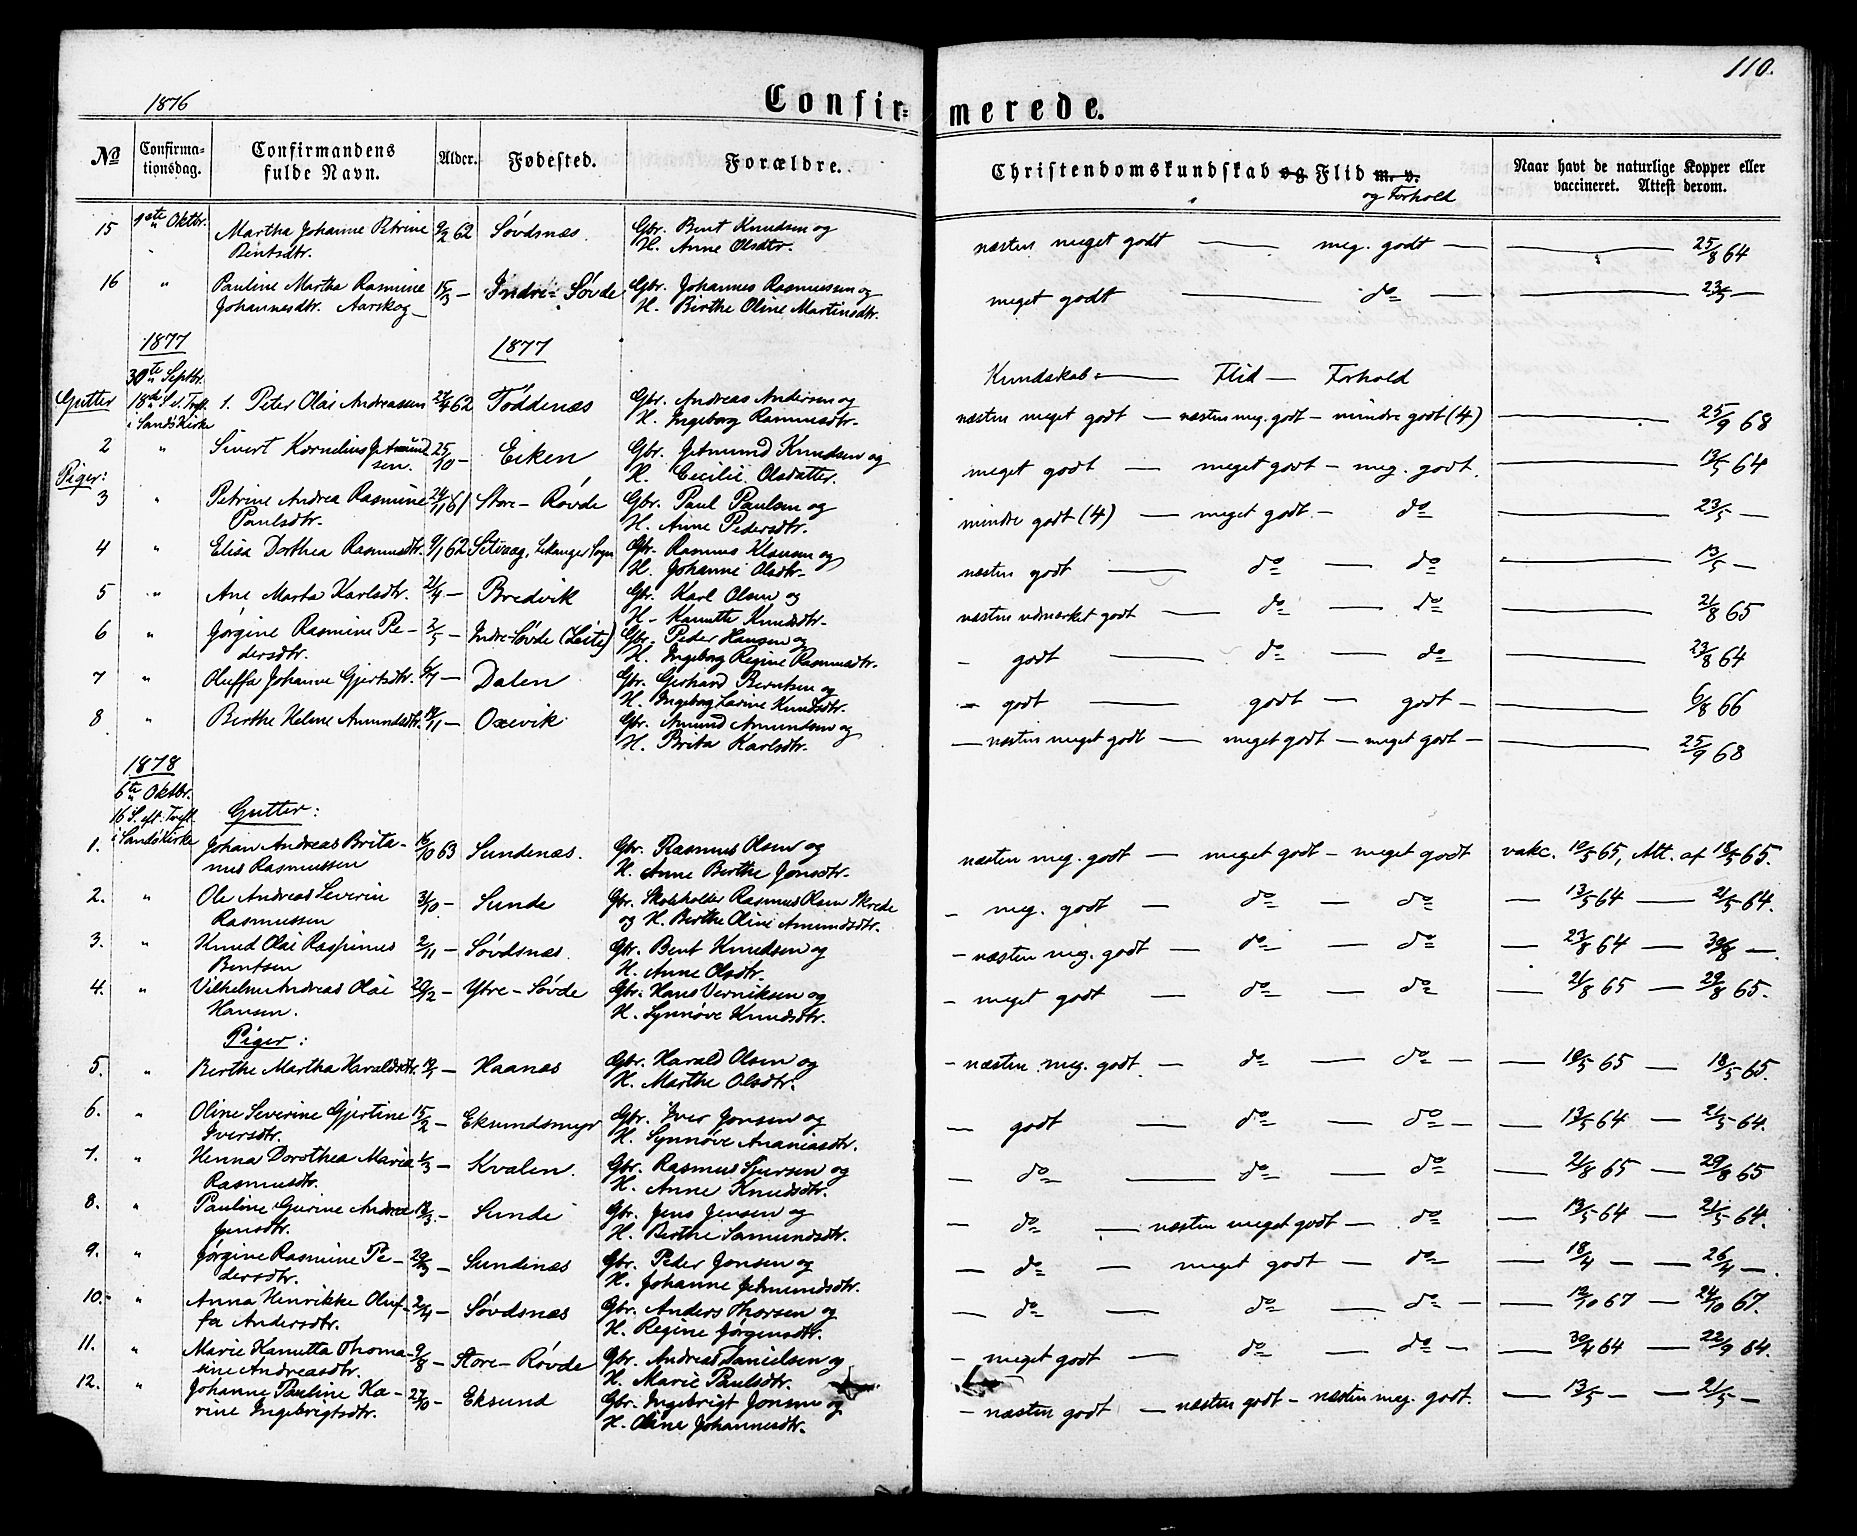 110.
1876
Confir= merede.
No Confirma- tionsdag. Confirmandens fulde Navn. Alder. Fødested. Forældre. Christendomskundskab og Flid m. v. og Forhold Naar havt de naturlige Kopper eller vaccineret. Attest derom.
15 1ste Oktbr. Martha Johanne Petrine 9/2 62 Søvdsnæs. Gbr. Bent Knudsen og næsten meget godt — meg. godt — 25/8 64
Bentsdtr. H. Anne Olsdtr.
16 " Pauline Martha Rasmine 15/3 — Indre-Søvde Gbr. Johannes Rasmussen og meget godt — do — 23/5 —
Johannesdtr. Aarskog H. Birthe Oline Martinsdtr.
1877 1877
30te Septbr. Kundskab — Flid — Forhold
Gutter 18de S. e. Tref. 1. Peter Olai Andreasen 27/4 62 Toddenæs Gbr. Andreas Andersen og næsten meget godt — næsten meg. godt — mindre godt (4) — 25/9 68
i Sandskirke H. Ingeborg Rasmusdtr.
2 " Sivert Kornelius Jetmund 25/10 — Eiken Gbr. Jetmund Knudsen og meget godt — meget godt — meg. godt. — 13/5 64
sen. H. Cecilie Olsdatter.
Piger:
3 " Petrine Andrea Rasmine 24/11 61 Store-Røvde Gbr. Paul Paulsen og mindre godt (4) — meget godt — do — 23/5 —
Paulsdtr. H. Anne Pedersdtr.
4 " Elisa Dorthea Rasmusdtr. 9/1 62 Setvaag, Lekanger Sogn Gbr. Rasmus Klausen og næsten godt — do — do — 13/5 —
H. Johanne Olsdtr.
5 " Ane Marta Karlsdtr. 21/4 — Bredvik Gbr. Karl Olsen og næsten udmærket godt — do — do — 21/8 65
H. Kanutte Knudsdtr.
6 " Jørgine Rasmine Pe- 2/5 — Indre-Søvde (Leite) Gbr. Peder Hansen og - godt — do — do — 23/8 64
dersdtr. H. Ingeborg Regine Rasmusdtr.
7 " Oluffa Johanne Gjertsdtr. 6/7 — Dalen Gbr. Gerhard Berntsen og - godt — godt — godt — 6/8 66
H. Ingeborg Larine Knudsdtr.
8 " Berthe Helene Amundsdtr. 12/11 — Oxevik Gbr. Amund Amundsen og — næsten meget godt — meget godt — meget godt — 25/9 68
H. Brita Karlsdtr.
1878
6te Oktbr.
16 S. eft. Tref. Gutter:
i Sandskirke
1. Johan Andreas Brita- 16/10 63 Sundenæs. Gbr. Rasmus Olsen og næsten meg. godt — meget godt — meget godt vakc. 10/5 65, Att. af 18/5 65.
nus Rasmussen H. Anne Berthe Jonsdtr.
2. " Ole Andreas Severin 31/10 — Sunde Gbr. Skoleholder Rasmus Olsen Skrede - meg. godt — do — do — 13/5 64 — 21/5 64.
Rasmussen og H. Berthe Oline Amundsdtr.
3. " Knud Olai Rasmus 2/11 — Søvdsnæs. Gbr. Bent Knudsen og - næsten meg. godt — do — do — 23/8 64 — 30/8 —
Bentsen H. Anne Olsdtr.
4. " Vilhelm Andreas Olai 29/12 — Ytre-Søvde Gbr. Hans Verniksen og - meget godt — do — do — 21/8 65 — 29/8 65.
Hansen. H. Synnøve Knudsdtr.
Piger:
5. " Berthe Martha Haraldsdtr. 12/1 — Haanæs Gbr. Harald Olsen og - næsten meg. godt — do — do — 10/5 65 — 18/5 65.
H. Marthe Olsdtr.
6. " Oline Severine Gjertine 15/2 — Eksundsmyr Gbr. Iver Jonsen og — godt — do — do — 13/5 64 — 21/5 64.
Iversdtr. H. Synnøve Ananiasdtr.
7. " Henna Dorothea Maria 1/3 — Kvalen. Gbr. Rasmus Sjursen og — do — do — do — 21/8 65 — 29/8 65
Rasmusdtr. H. Anne Knudsdtr.
8. " Pauline Gurine Andrea 18/3 — Sunde Gbr. Jens Jensen og — do — næsten meget godt — do — 13/5 64 — 21/5 64.
Jensdtr. H. Berthe Samundsdtr.
9. " Jørgine Rasmine Pe- 29/3 — Sundenæs Gbr. Peder Jonsen og — do — meget godt — do — 18/4 — — 26/4 —
dersdtr. H. Johanne Jetmundsdtr.
10. " Anna Henrikke Oluf- 2/4 — Søvdsnæs Gbr. Anders Thorsen og — do — do — do — 12/10 67 — 24/10 67.
fa Andersdtr. H. Regine Jørgensdtr.
11. " Marie Kanutta Thoma- 9/8 — Store-Røvde Gbr. Andreas Danielsen og - meget godt — do — do — 30/4 64 — 22/9 64.
sine Andreasdtr. H. Marie Paulsdtr.
12. " Johanne Pauline Ka- 27/10 — Eksund Gbr. Ingebrigt Jonsen og - næsten godt — næsten godt — næsten meg. godt. — 13/5 — — 21/5 —
rine Ingebrigtsdtr. H. Oline Johannesdtr.